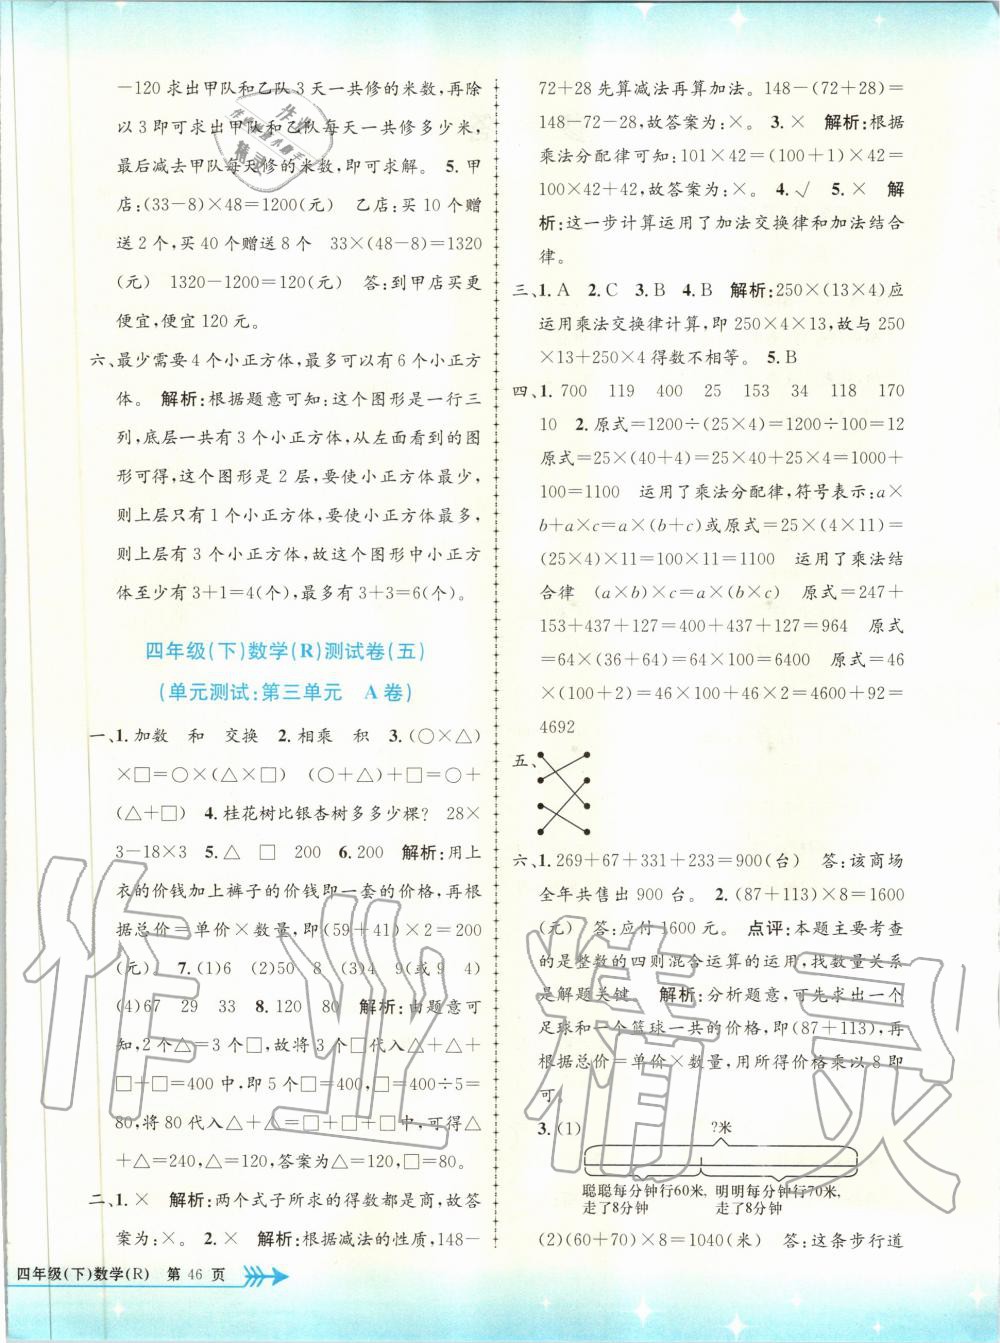 -120求出甲队和乙队3天一共修的米数,再除
以3即可求出甲队和乙队每天一共修多少米,
最后减去甲队每天修的米数,即可求解。 5. 甲
店:(33-8)×48=1200(元) 乙店:买10个赠
送2个,买40个赠送8个 33×(48-8)=1320
(元) 1320-1200=120(元) 答:到甲店买更
便宜,便宜120元。
六、最少需要4个小正方体,最多可以有6个小正方
体。 解析:根据题意可知:这个图形是一行三
列,底层一共有3个小正方体,从左面看到的图
形可得,这个图形是2层,要使小正方体最少,
则上层只有1个小正方体,要使小正方体最多,
则上层有3个小正方体,故这个图形中小正方
体至少有3+1=4(个),最多有3+3=6(个)。
四年级(下)数学(R)测试卷(五)
(单元测试:第三单元 A卷)
一、1. 加数 和 交换 2. 相乘 积 3. (○×△)
×□=○×(△×□) (○+△)+□=○+
(△+□) 4. 桂花树比银杏树多多少棵? 28×
3-18×3 5. △ □ 200 6. 200 解析:用上
衣的价钱加上裤子的价钱即一套的价格,再根
据总价=单价×数量,即(59+41)×2=200
(元) 7. (1)6 (2)50 8 (3)4 9(或9 4)
(4)67 29 33 8. 120 80 解析:由题意可
知,2个△=3个□,故将3个□代入△+△+
□+□=400中,即5个□=400,□=400÷5=
80,将80代入△+△+□+□+□中,可得△
+△=240,△=120,答案为△=120,□=80。
二、1. × 解析:两个式子所求的得数都是商,故答
案为:×。 2. × 解析:根据减法的性质,148-
四年级(下)数学(R) 第 46 页
72+28先算减法再算加法。148-(72+28)=
148-72-28,故答案为:×。 3. × 解析:根据
乘法分配律可知:101×42=(100+1)×42=
100×42+42,故答案为:×。 4. √ 5. × 解
析:这一步计算运用了加法交换律和加法结合
律。
三、1. A 2. C 3. B 4. B 解析:250×(13×4)应
运用乘法交换律计算,即250×4×13,故与250
×13+250×4得数不相等。 5. B
四、1. 700 119 400 25 153 34 118 170
10 2. 原式=1200÷(25×4)=1200÷100=12
原式=25×(40+4)=25×40+25×4=1000+
100=1100 运用了乘法分配律,符号表示:a×
b+a×c=a×(b+c)或原式=25×(4×11)=
(25×4)×11=100×11=1100 运用了乘法结
合律 (a×b)×c=a×(b×c) 原式=247+
153+437+127=400+437+127=964 原式
=64×(36+64)=64×100=6400 原式=46
×(100+2)=46×100+46×2=4600+92=
4692
五、
六、1. 269+67+331+233=900(台) 答:该商场
全年共售出900台。 2. (87+113)×8=1600
(元) 答:应付1600元。 点评:本题主要考查
的是整数的四则混合运算的运用,找数量关系
是解题关键 解析:分析题意,可先求出一个
足球和一个篮球一共的价格,即(87+113),再
根据总价=单价×数量,用所得价格乘以8即
可。
3. (1) ?米
聪聪每分钟行60米, 明明每分钟行70米,
走了8分钟 走了8分钟
(2)(60+70)×8=1040(米) 答:这条步行道
作业精灵